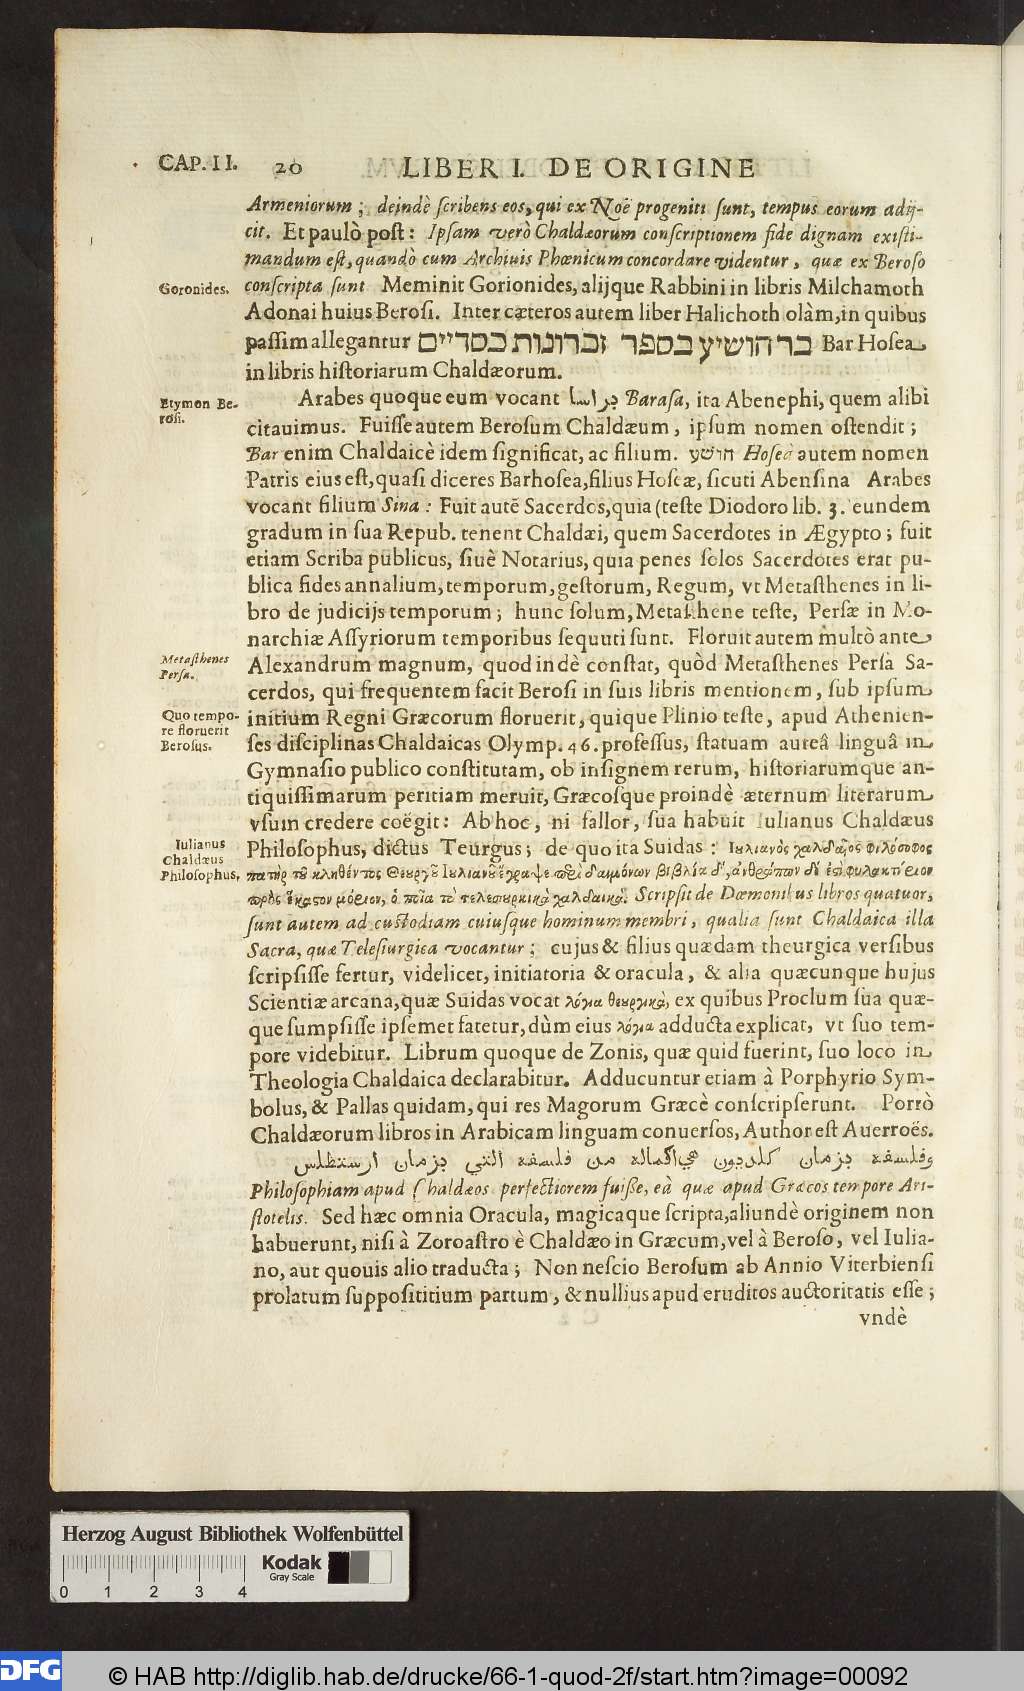 CAP. II. 20 LIBER I. DE ORIGINE
Armeniorum; deindè scribens eos, qui ex Noë progeniti sunt, tempus eorum adij-
cit. Et paulò post: Ipsam verò Chaldæorum conscriptionem fide dignam existi-
mandum est, quandò cum Archiuis Phœnicum concordare videntur, quæ ex Beroso
Goronides.
conscripta sunt Meminit Gorionides, alijque Rabbini in libris Milchamoth
Adonai huius Berosi. Inter cæteros autem liber Halichoth olàm, in quibus
passim allegantur בר הושיע בספר זכרונות כסדיים Bar Hosea
in libris historiarum Chaldæorum.
Etymon Be-
rosi.
Arabes quoque eum vocant براسا Barasa, ita Abenephi, quem alibi
citauimus. Fuisse autem Berosum Chaldæum, ipsum nomen ostendit;
Bar enim Chaldaicè idem significat, ac filium. הושע Hosea autem nomen
Patris eius est, quasi diceres Barhosea, filius Hoseæ, sicuti Abensina Arabes
vocant filium Sina: Fuit autē Sacerdos, quia (teste Diodoro lib. 3. eundem
gradum in sua Repub. tenent Chaldæi, quem Sacerdotes in Ægypto; fuit
etiam Scriba publicus, siuè Notarius, quia penes solos Sacerdotes erat pu-
blica fides annalium, temporum, gestorum, Regum, vt Metasthenes in li-
bro de judicijs temporum; hunc solum, Metasthene teste, Persæ in Mo-
narchiæ Assyriorum temporibus sequuti sunt. Floruit autem multò ante
Metasthenes
Persa.
Alexandrum magnum, quod indè constat, quòd Metasthenes Persa Sa-
cerdos, qui frequentem facit Berosi in suis libris mentionem, sub ipsum
Quo tempo-
re floruerit
Berosus.
initium Regni Græcorum floruerit, quique Plinio teste, apud Athenien-
ses disciplinas Chaldaicas Olymp. 46. professus, statuam aureâ linguâ in
Gymnasio publico constitutam, ob insignem rerum, historiarumque an-
tiquissimarum peritiam meruit, Græcosque proindè æternum literarum
vsum credere coëgit: Ab hoc, ni fallor, sua habuit Iulianus Chaldæus
Iulianus
Chaldæus
Philosophus,
Philosophus, dictus Teurgus; de quo ita Suidas: Ιουλιανὸς χαλδαῖος φιλόσοφος
πατὴρ τοῦ κληθέντος Θεουργοῦ Ιουλιανοῦ ἔγραψε περὶ δαιμόνων βιβλία δ', ἀνθρώπων δὲ ἐστὶ φυλακτήριον
πρὸς ἕκαστον μόριον, ὁ ποῖα τὸ τελεσιουργικὰ χαλδαικά. Scripsit de Dæmonibus libros quatuor,
sunt autem ad custodiam cuiusque hominum membri, qualia sunt Chaldaica illa
Sacra, quæ Telesiurgica vocantur; cujus & filius quædam theurgica versibus
scripsisse fertur, videlicet, initiatoria & oracula, & alia quæcunque hujus
Scientiæ arcana, quæ Suidas vocat λόγια θεουργικὰ, ex quibus Proclum sua quæ-
que sumpsisse ipsemet fatetur, dùm eius λόγια adducta explicat, vt suo tem-
pore videbitur. Librum quoque de Zonis, quæ quid fuerint, suo loco in
Theologia Chaldaica declarabitur. Adducuntur etiam à Porphyrio Sym-
bolus, & Pallas quidam, qui res Magorum Græcè conscripserunt. Porrò
Chaldæorum libros in Arabicam linguam conuersos, Author est Auerroës.
وفلسفه بزمان كلديون هي اكماله من فلسفه التي بزمان ارستطلس
Philosophiam apud Chaldæos perfectiorem fuisse, eà quæ apud Græcos tempore Ari-
stotelis. Sed hæc omnia Oracula, magicaque scripta, aliundè originem non
habuerunt, nisi à Zoroastro è Chaldæo in Græcum, vel à Beroso, vel Iulia-
no, aut quouis alio traducta; Non nescio Berosum ab Annio Viterbiensi
prolatum supposititium partum, & nullius apud eruditos auctoritatis esse;
vndè
Herzog August Bibliothek Wolfenbüttel
0 1 2 3 4
Kodak
Gray Scale
DFG © HAB http://diglib.hab.de/drucke/66-1-quod-2f/start.htm?image=00092